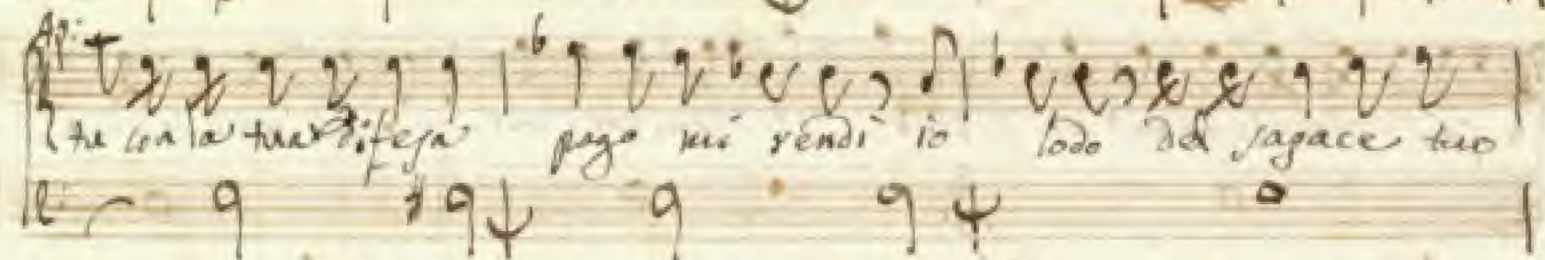 Ap:
tu con la tua difesa pago mi rendi io lodo del sagace tuo